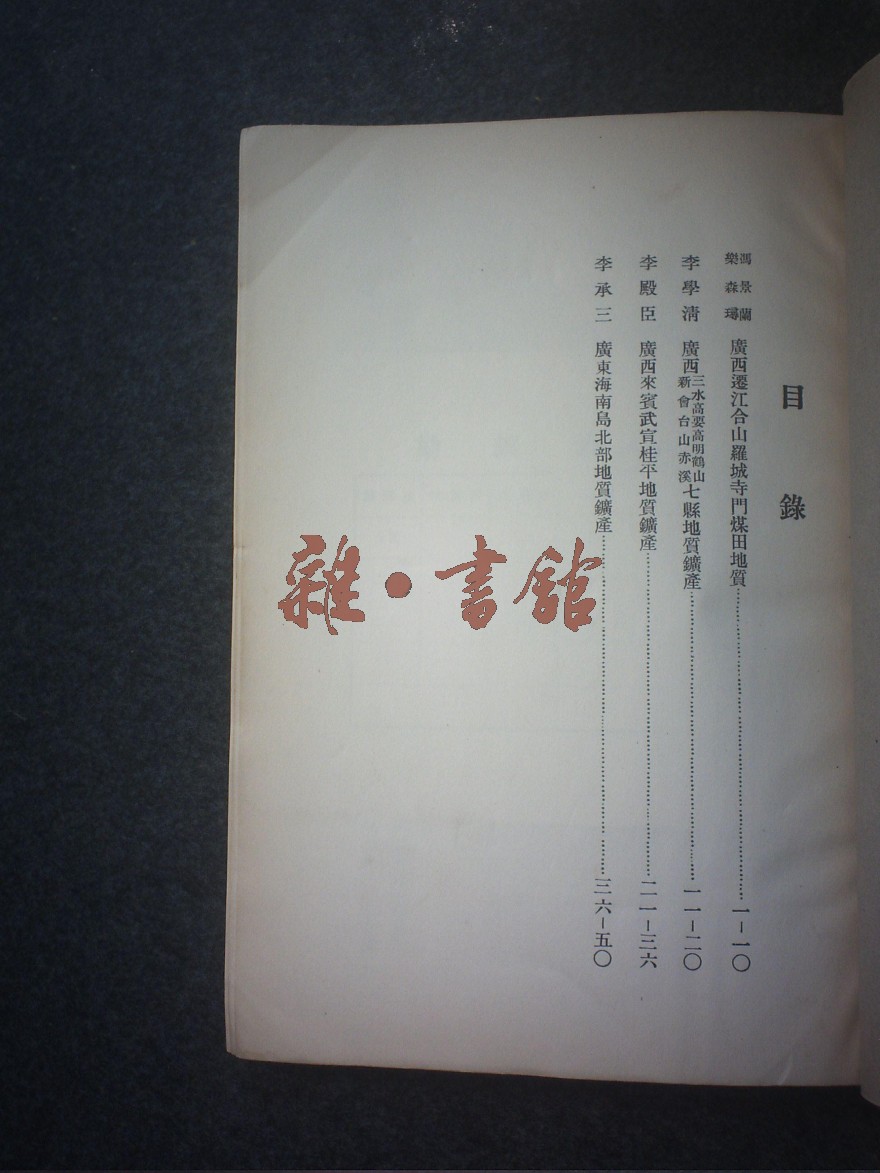 目錄
馮景蘭
樂森璕
廣西遷江合山羅城寺門煤田地質……一—一〇
李學清
廣西三水高要高明鶴山新會台山赤溪七縣地質鑛產……一一—二〇
李殿臣
廣西來賓武宣桂平地質鑛產……二一—三六
李承三
廣東海南島北部地質鑛產……三六—五〇
雜·書館